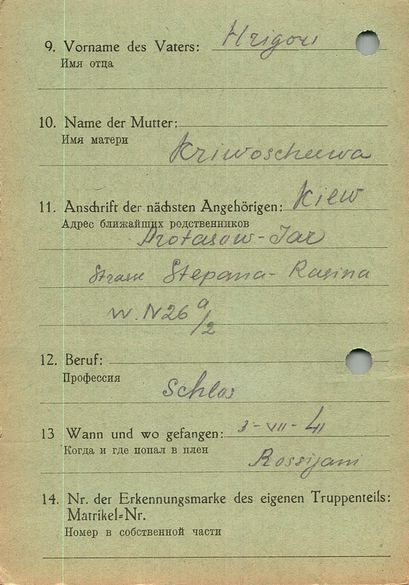 9. Vorname des Vaters: Hrigori
Имя отца
10. Name der Mutter:
Имя матери
Kriwoscheewa
11. Anschrift der nächsten Angehörigen: Kiew
Адрес ближайших родственников
Protasow-Jar
Strasse Stepana-Rasina
W. N 26 a/2
12. Beruf:
Профессия
Schlos
13 Wann und wo gefangen: 3-VII-41
Когда и где попал в плен
Rossijani
14. Nr. der Erkennungsmarke des eigenen Truppenteils:
Matrikel-Nr.
Номер в собственной части